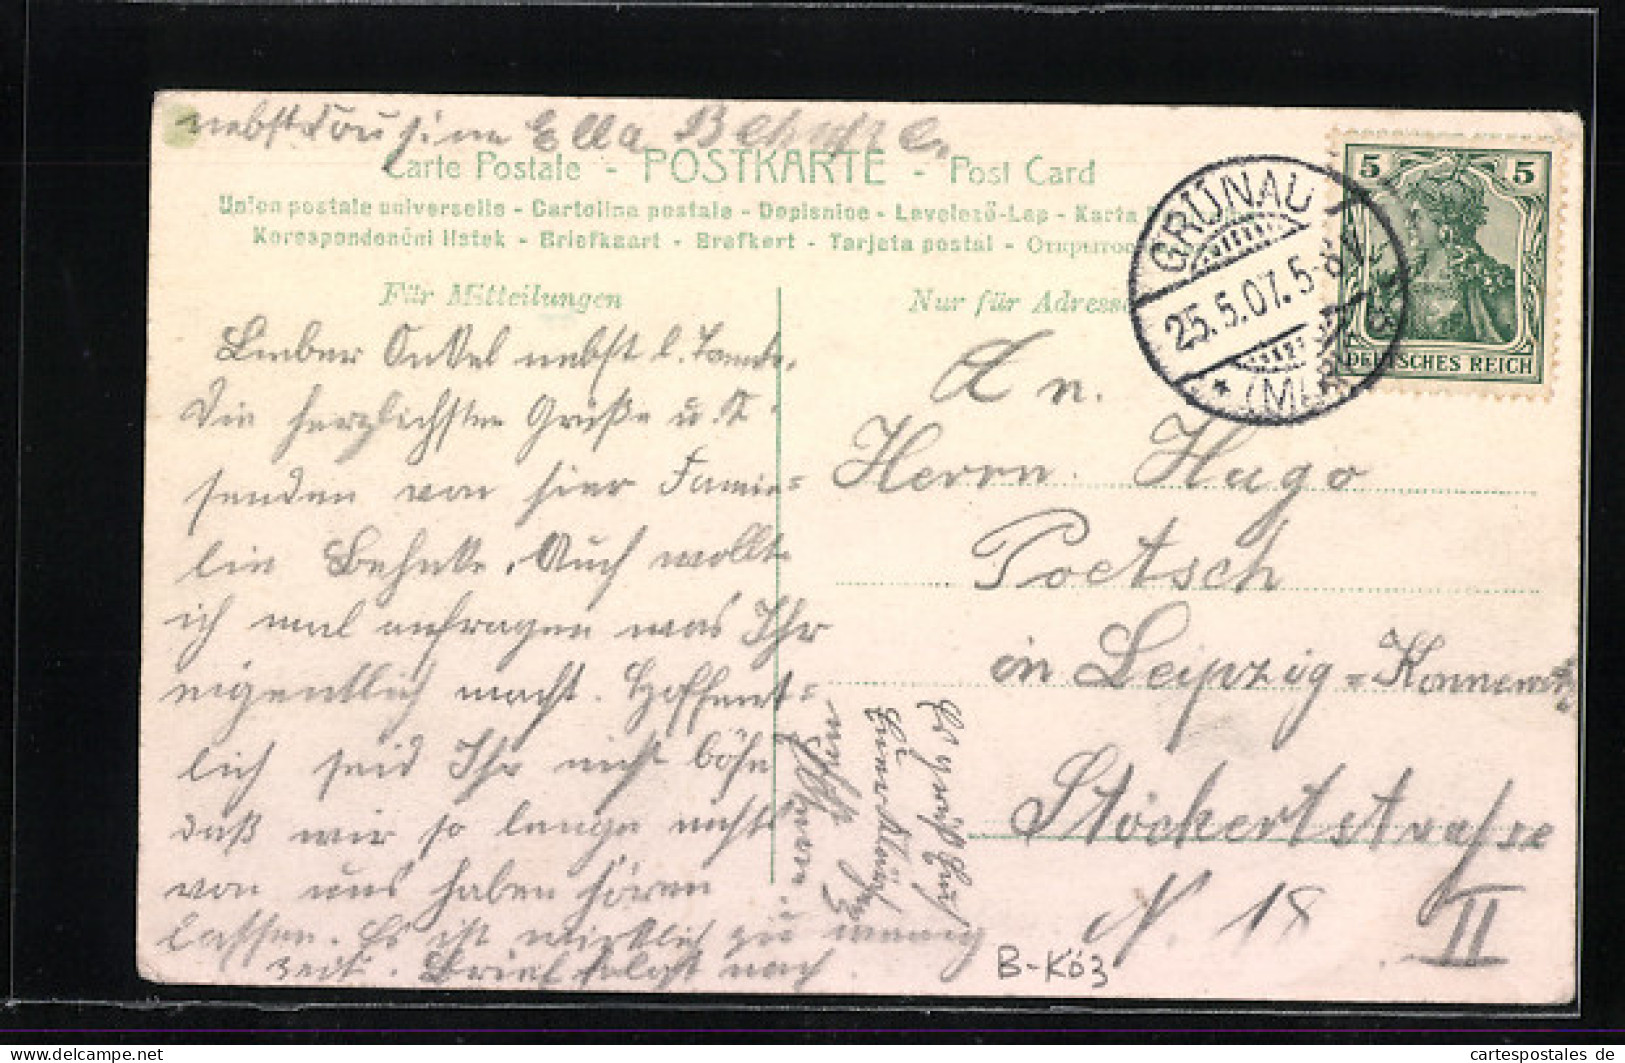 nebst Cousine Ella
Carte Postale - POSTKARTE - Post Card
Union postale universelle - Cartolina postale - Dopisnice - Levelező-Lap - Karta
Korespondenční lístek - Briefkaart - Brefkort - Tarjeta postal -
Für Mitteilungen
Lieber Onkel nebst l. Tante.
Die herzlichsten Grüße u. K.
senden von hier Familie=
lie Behnke. Auch wollte
ich mal anfragen was Ihr
eigentlich macht. Hoffent=
lich seid Ihr nicht böse
daß wir so lange nichts
von uns haben hören
lassen. Es ist wirklich zu wenig
Zeit. Brief folgt nach.
Es grüßt Euch
Nur für Adresse
An.
Herrn Hugo
Poetsch
in Leipzig = Konnewitz
Stöckertstrasse
N. 18 II
GRÜNAU
25.5.07. 5-6N
* (MARK)
5 5
DEUTSCHES REICH
B-Kó3
© cartespostales de